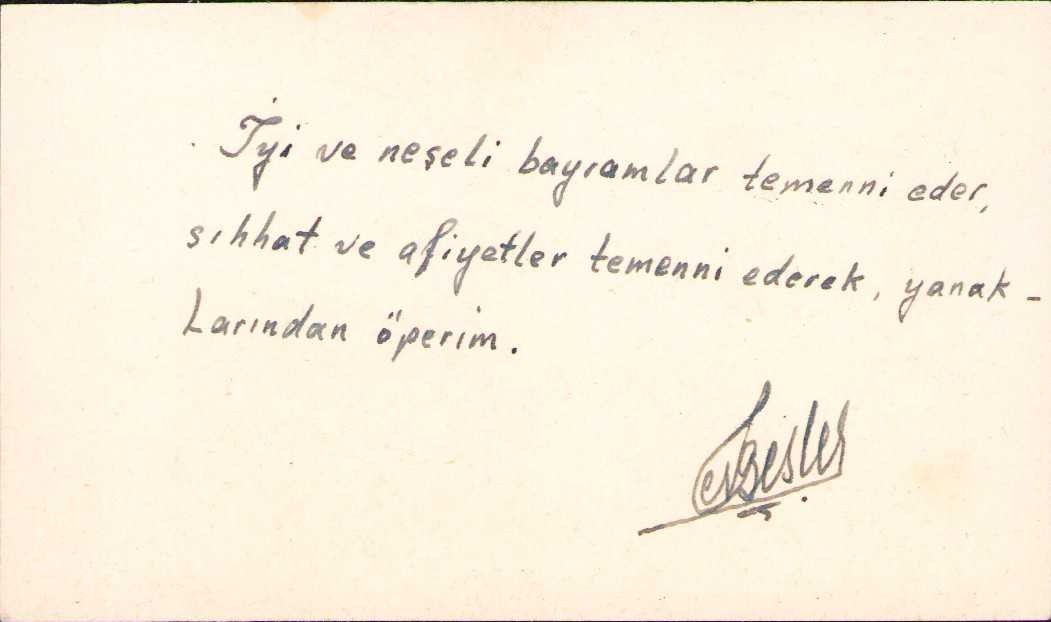 İyi ve neşeli bayramlar temenni eder,
sıhhat ve afiyetler temenni ederek, yanak-
Larından öperim.